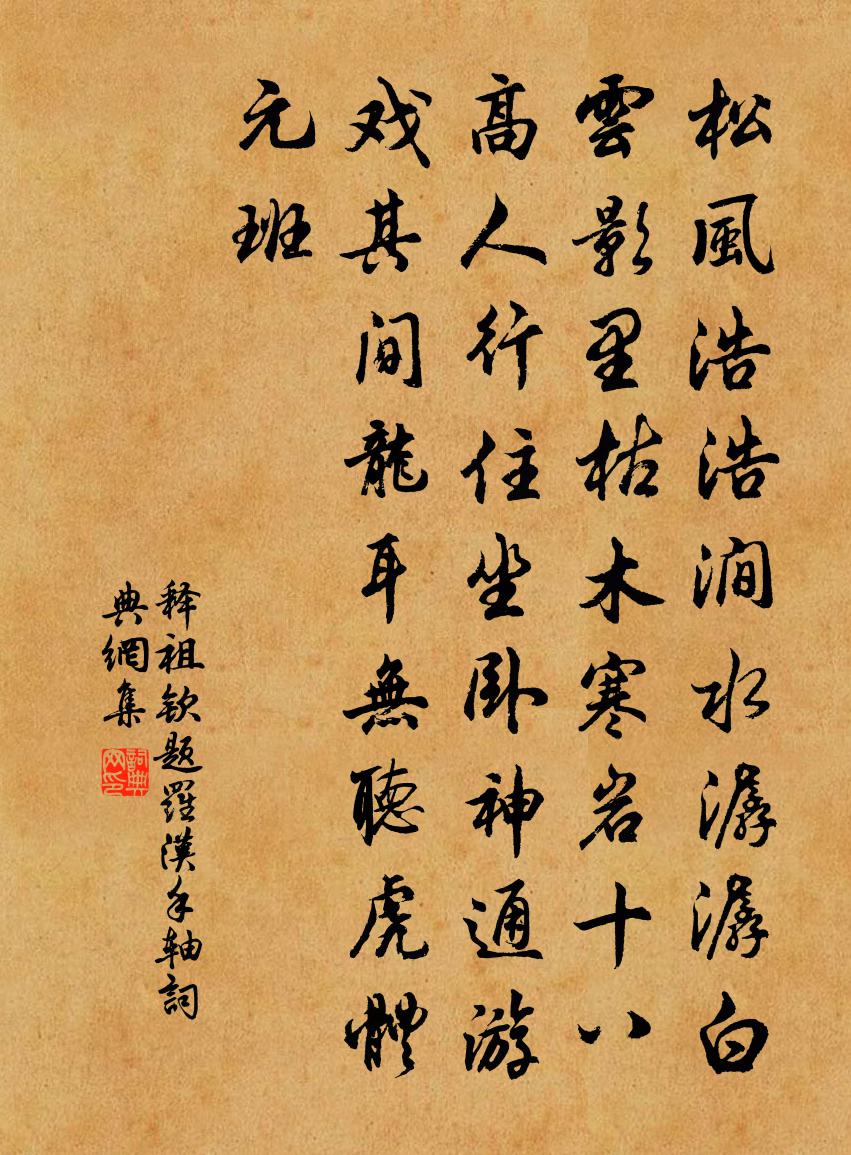 松風浩浩澗水潺潺白
雲影里枯木寒岩十八
高人行住坐卧神通游
戏其间龍耳無聽虎體
元班
释祖钦题羅漢手轴詞
典網集
詞典
网印